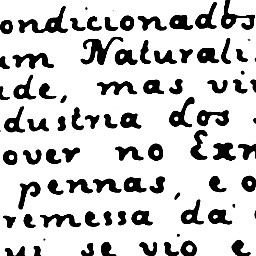 ondicionados
um Naturali
ade, mas vi
dustria dos
over no Exm
pennas, e o
remessa da
se vio e